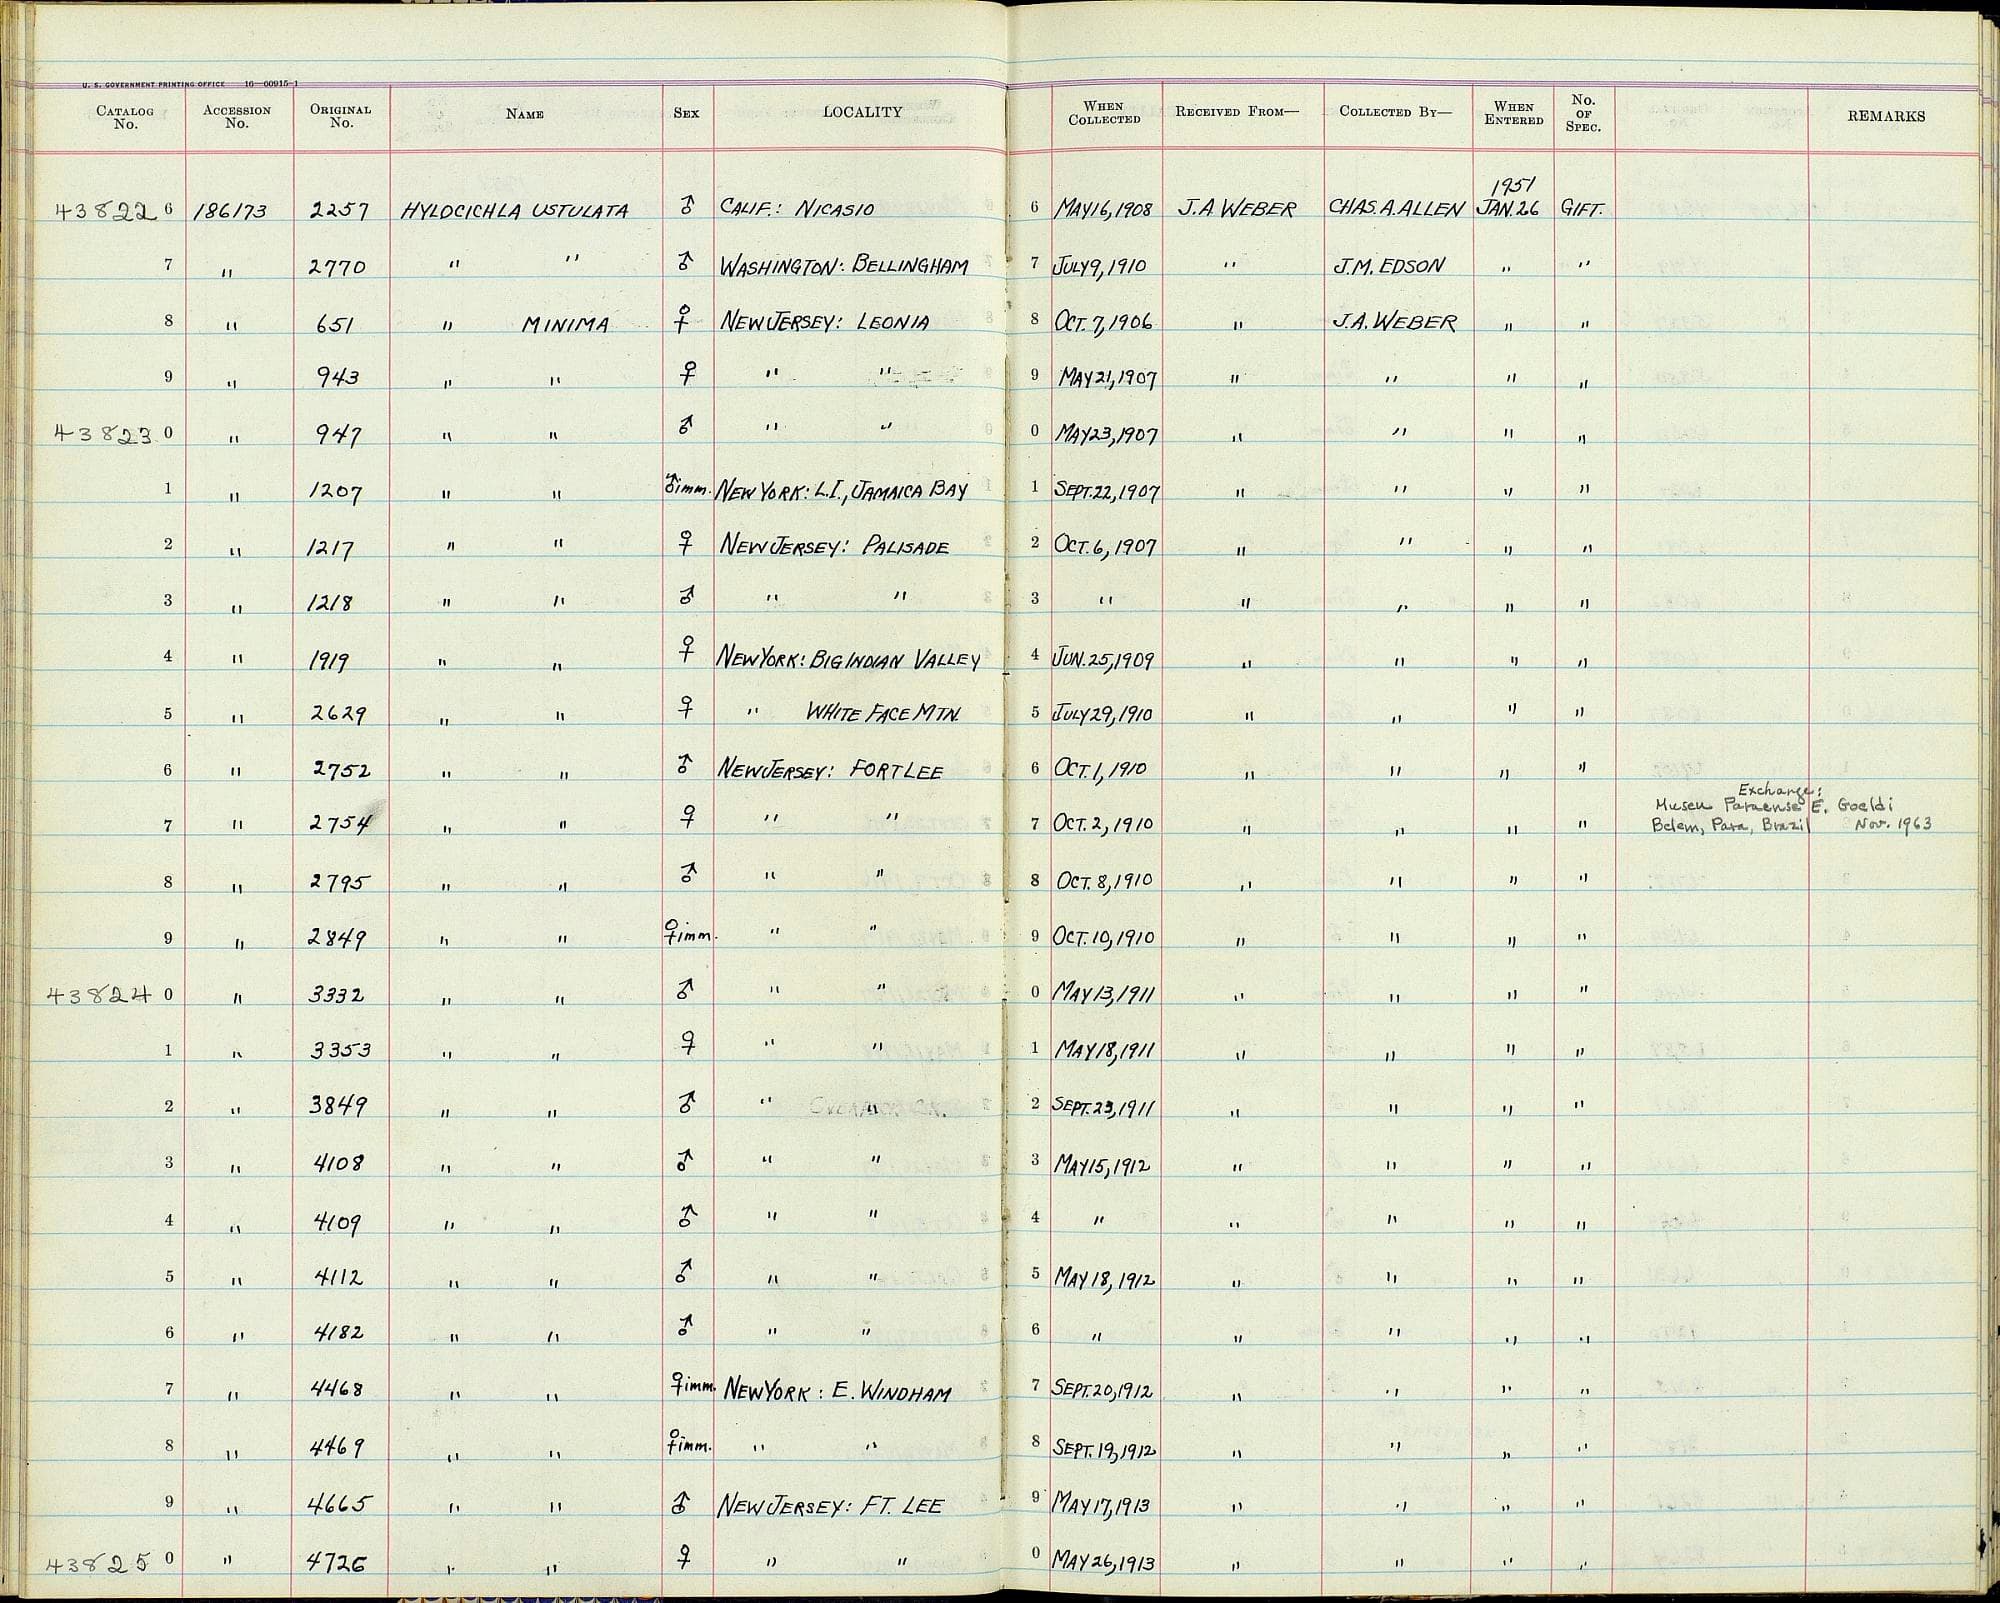 U. S. GOVERNMENT PRINTING OFFICE 16—60915-1
CATALOG No. ACCESSION No. ORIGINAL No. NAME SEX LOCALITY WHEN COLLECTED RECEIVED FROM— COLLECTED BY— WHEN ENTERED No. OF SPEC. REMARKS
1951
43822 6 186173 2257 HYLOCICHLA USTULATA ♂ CALIF.: NICASIO 6 MAY 16, 1908 J.A. WEBER CHAS. A. ALLEN JAN. 26 GIFT.
7 " 2770 " " ♂ WASHINGTON: BELLINGHAM 7 JULY 9, 1910 " J.M. EDSON " "
8 " 651 " MINIMA ♀ NEW JERSEY: LEONIA 8 OCT. 7, 1906 " J.A. WEBER " "
9 " 943 " " ♀ " " 9 MAY 21, 1907 " " " "
43823 0 " 947 " " ♂ " " 0 MAY 23, 1907 " " " "
1 " 1207 " " ♂imm. NEW YORK: L.I., JAMAICA BAY 1 SEPT. 22, 1907 " " " "
2 " 1217 " " ♀ NEW JERSEY: PALISADE 2 OCT. 6, 1907 " " " "
3 " 1218 " " ♂ " " 3 " " " " "
4 " 1919 " " ♀ NEW YORK: BIG INDIAN VALLEY 4 JUN. 25, 1909 " " " "
5 " 2629 " " ♀ " WHITE FACE MTN. 5 JULY 29, 1910 " " " "
6 " 2752 " " ♂ NEW JERSEY: FORT LEE 6 OCT. 1, 1910 " " " "
Exchange:
Museu Paraense E. Goeldi
7 " 2754 " " ♀ " " 7 OCT. 2, 1910 " " " " Belem, Para, Brazil Nov. 1963
8 " 2795 " " ♂ " " 8 OCT. 8, 1910 " " " "
9 " 2849 " " ♀imm. " " 9 OCT. 10, 1910 " " " "
43824 0 " 3332 " " ♂ " " 0 MAY 13, 1911 " " " "
1 " 3353 " " ♀ " " 1 MAY 18, 1911 " " " "
2 " 3849 " " ♂ " " 2 SEPT. 23, 1911 " " " "
3 " 4108 " " ♂ " " 3 MAY 15, 1912 " " " "
4 " 4109 " " ♂ " " 4 " " " " "
5 " 4112 " " ♂ " " 5 MAY 18, 1912 " " " "
6 " 4182 " " ♂ " " 6 " " " " "
7 " 4468 " " ♀imm. NEW YORK: E. WINDHAM 7 SEPT. 20, 1912 " " " "
8 " 4469 " " ♀imm. " " 8 SEPT. 19, 1912 " " " "
9 " 4665 " " ♂ NEW JERSEY: FT. LEE 9 MAY 17, 1913 " " " "
43825 0 " 4726 " " ♀ " " 0 MAY 26, 1913 " " " "